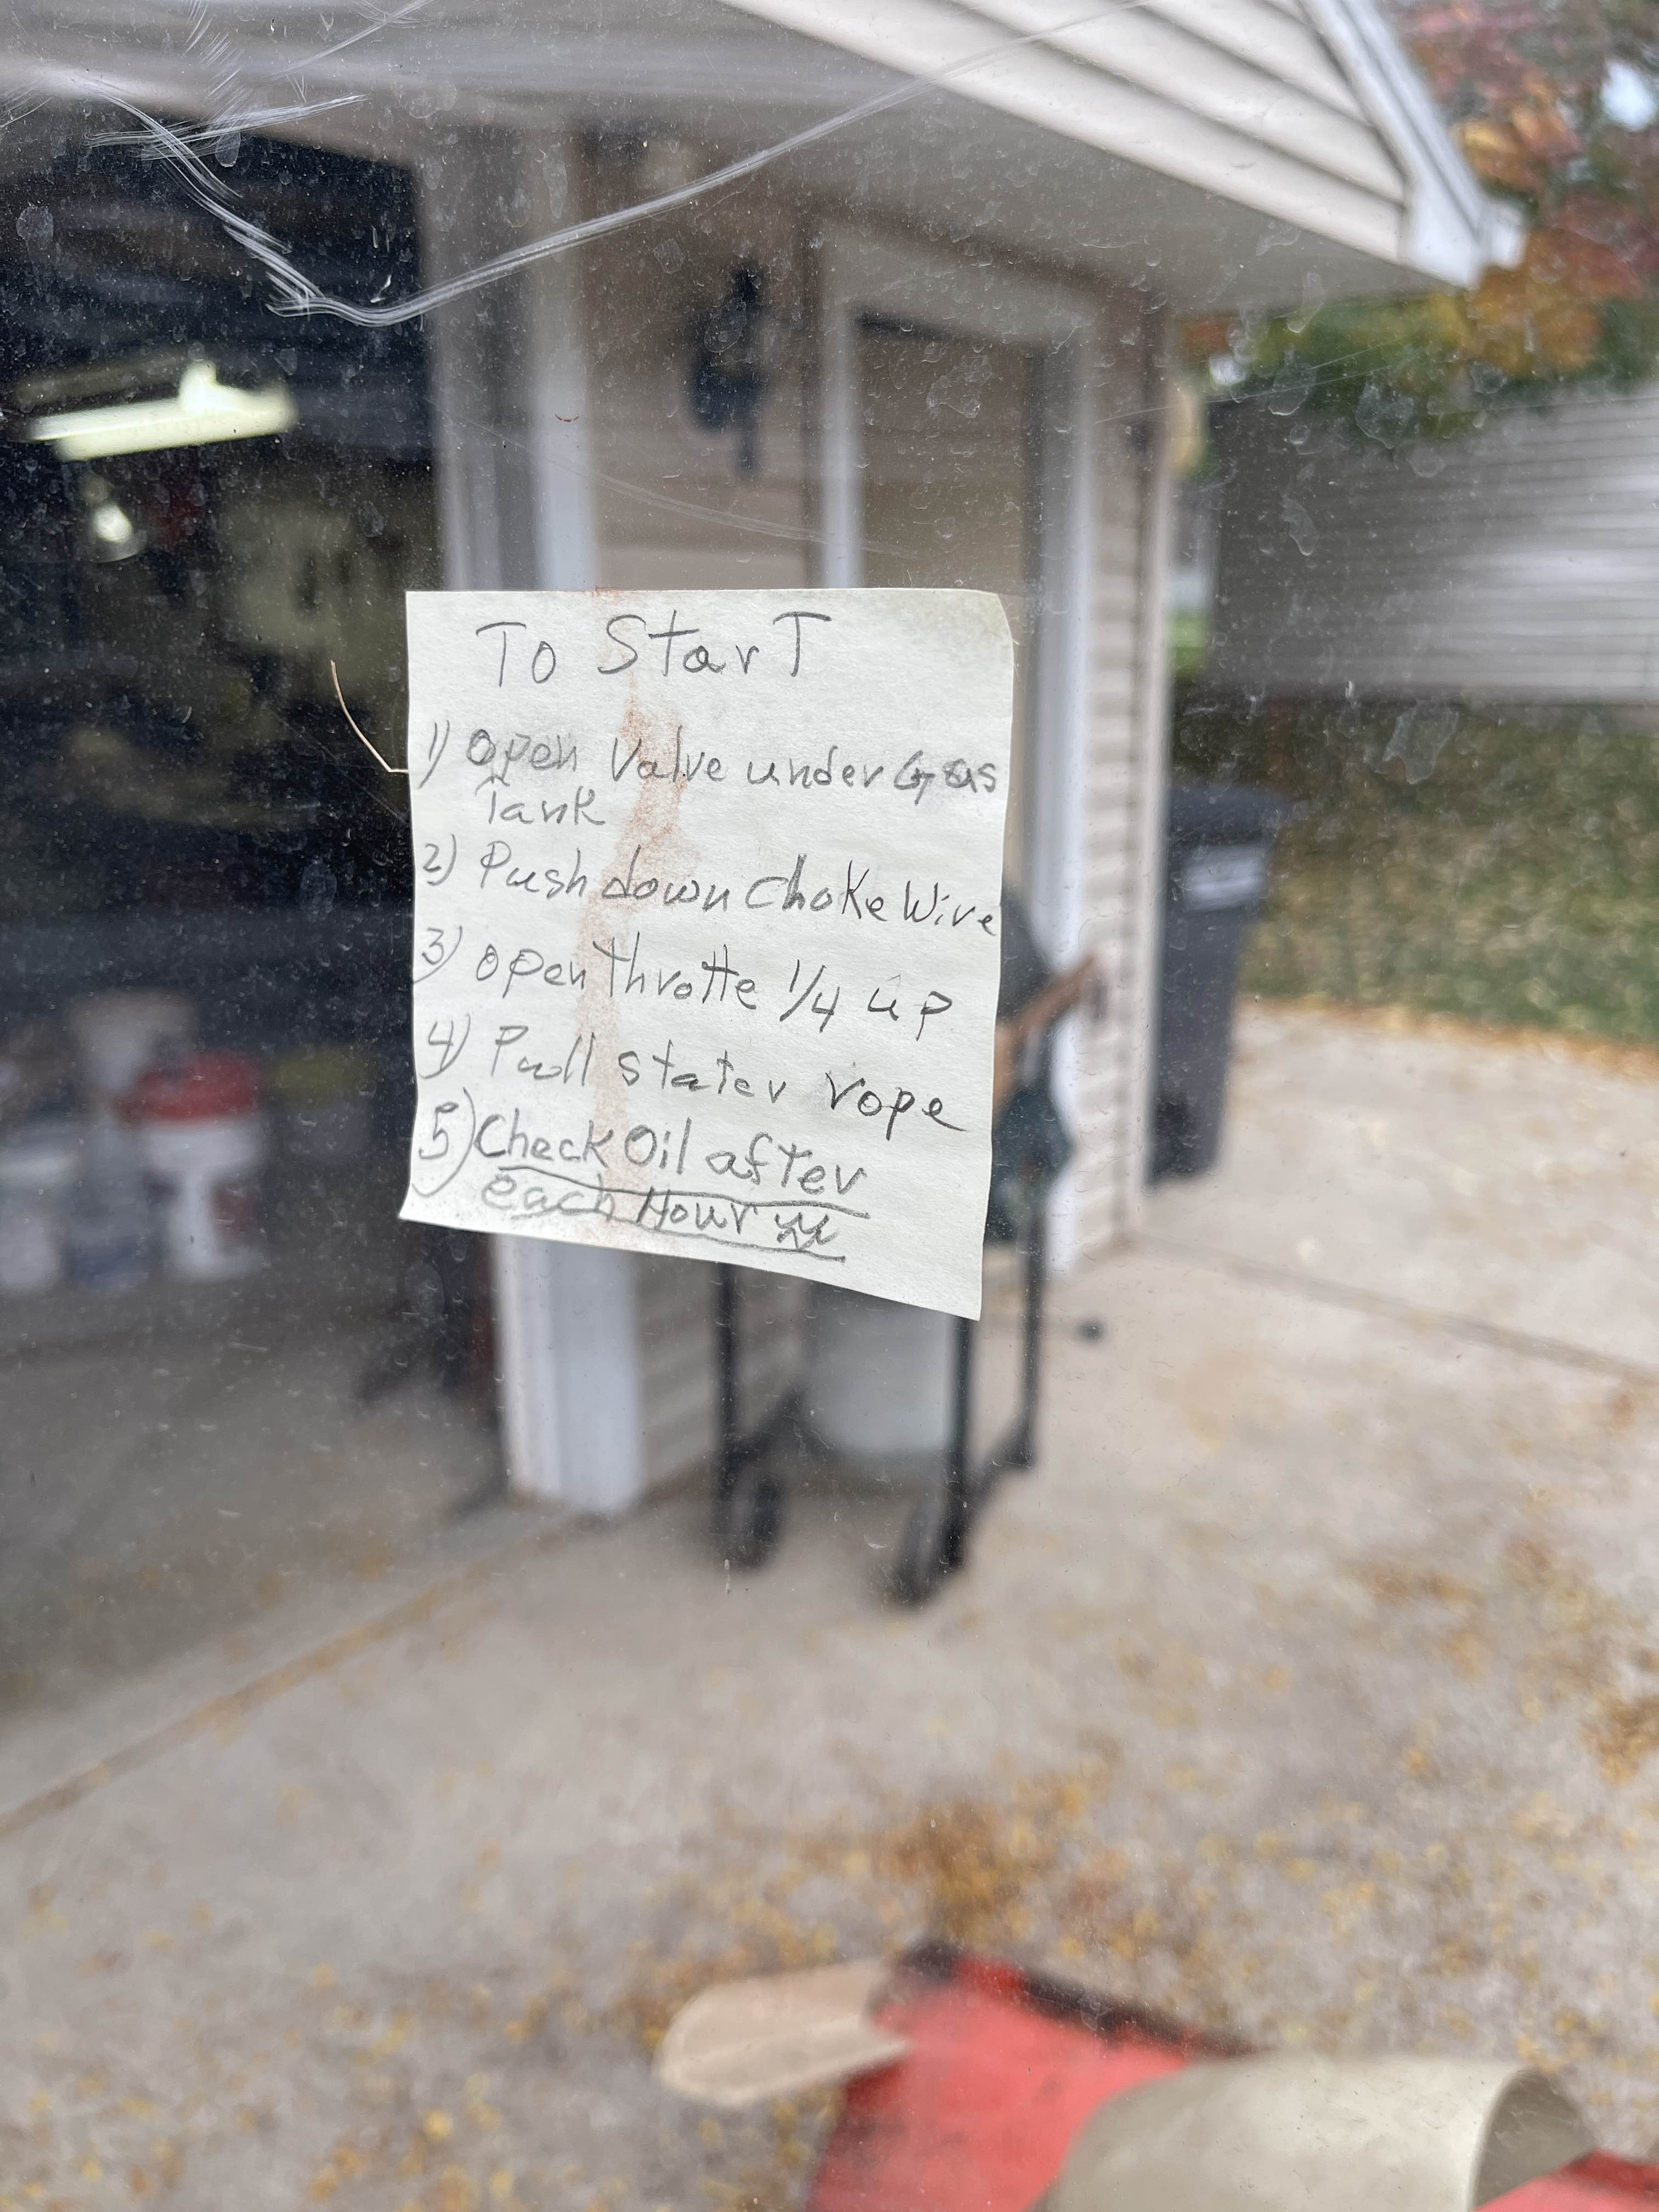 To StarT
1) Open Valve under Gas
Tank
2) Push down Choke Wire
3) open throttle 1/4 up
4) Pull stater rope
5) Check Oil after
each Hour